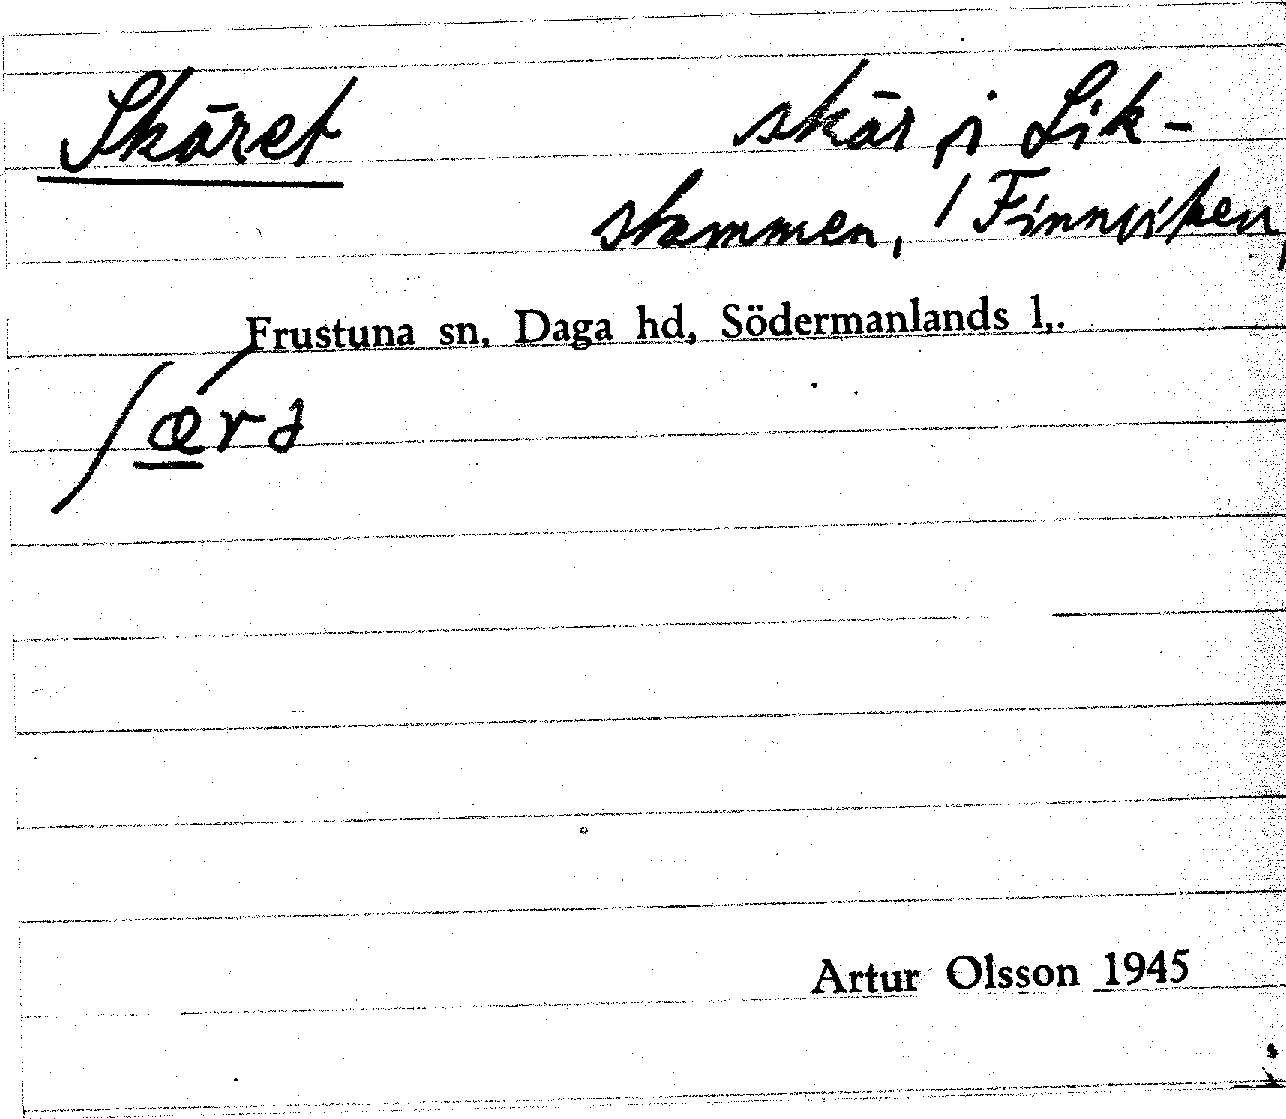 Skäret skär i Lik-
stammen, i Finnviken,
Frustuna sn, Daga hd, Södermanlands l,.
ʃǽrə
Artur Olsson 1945